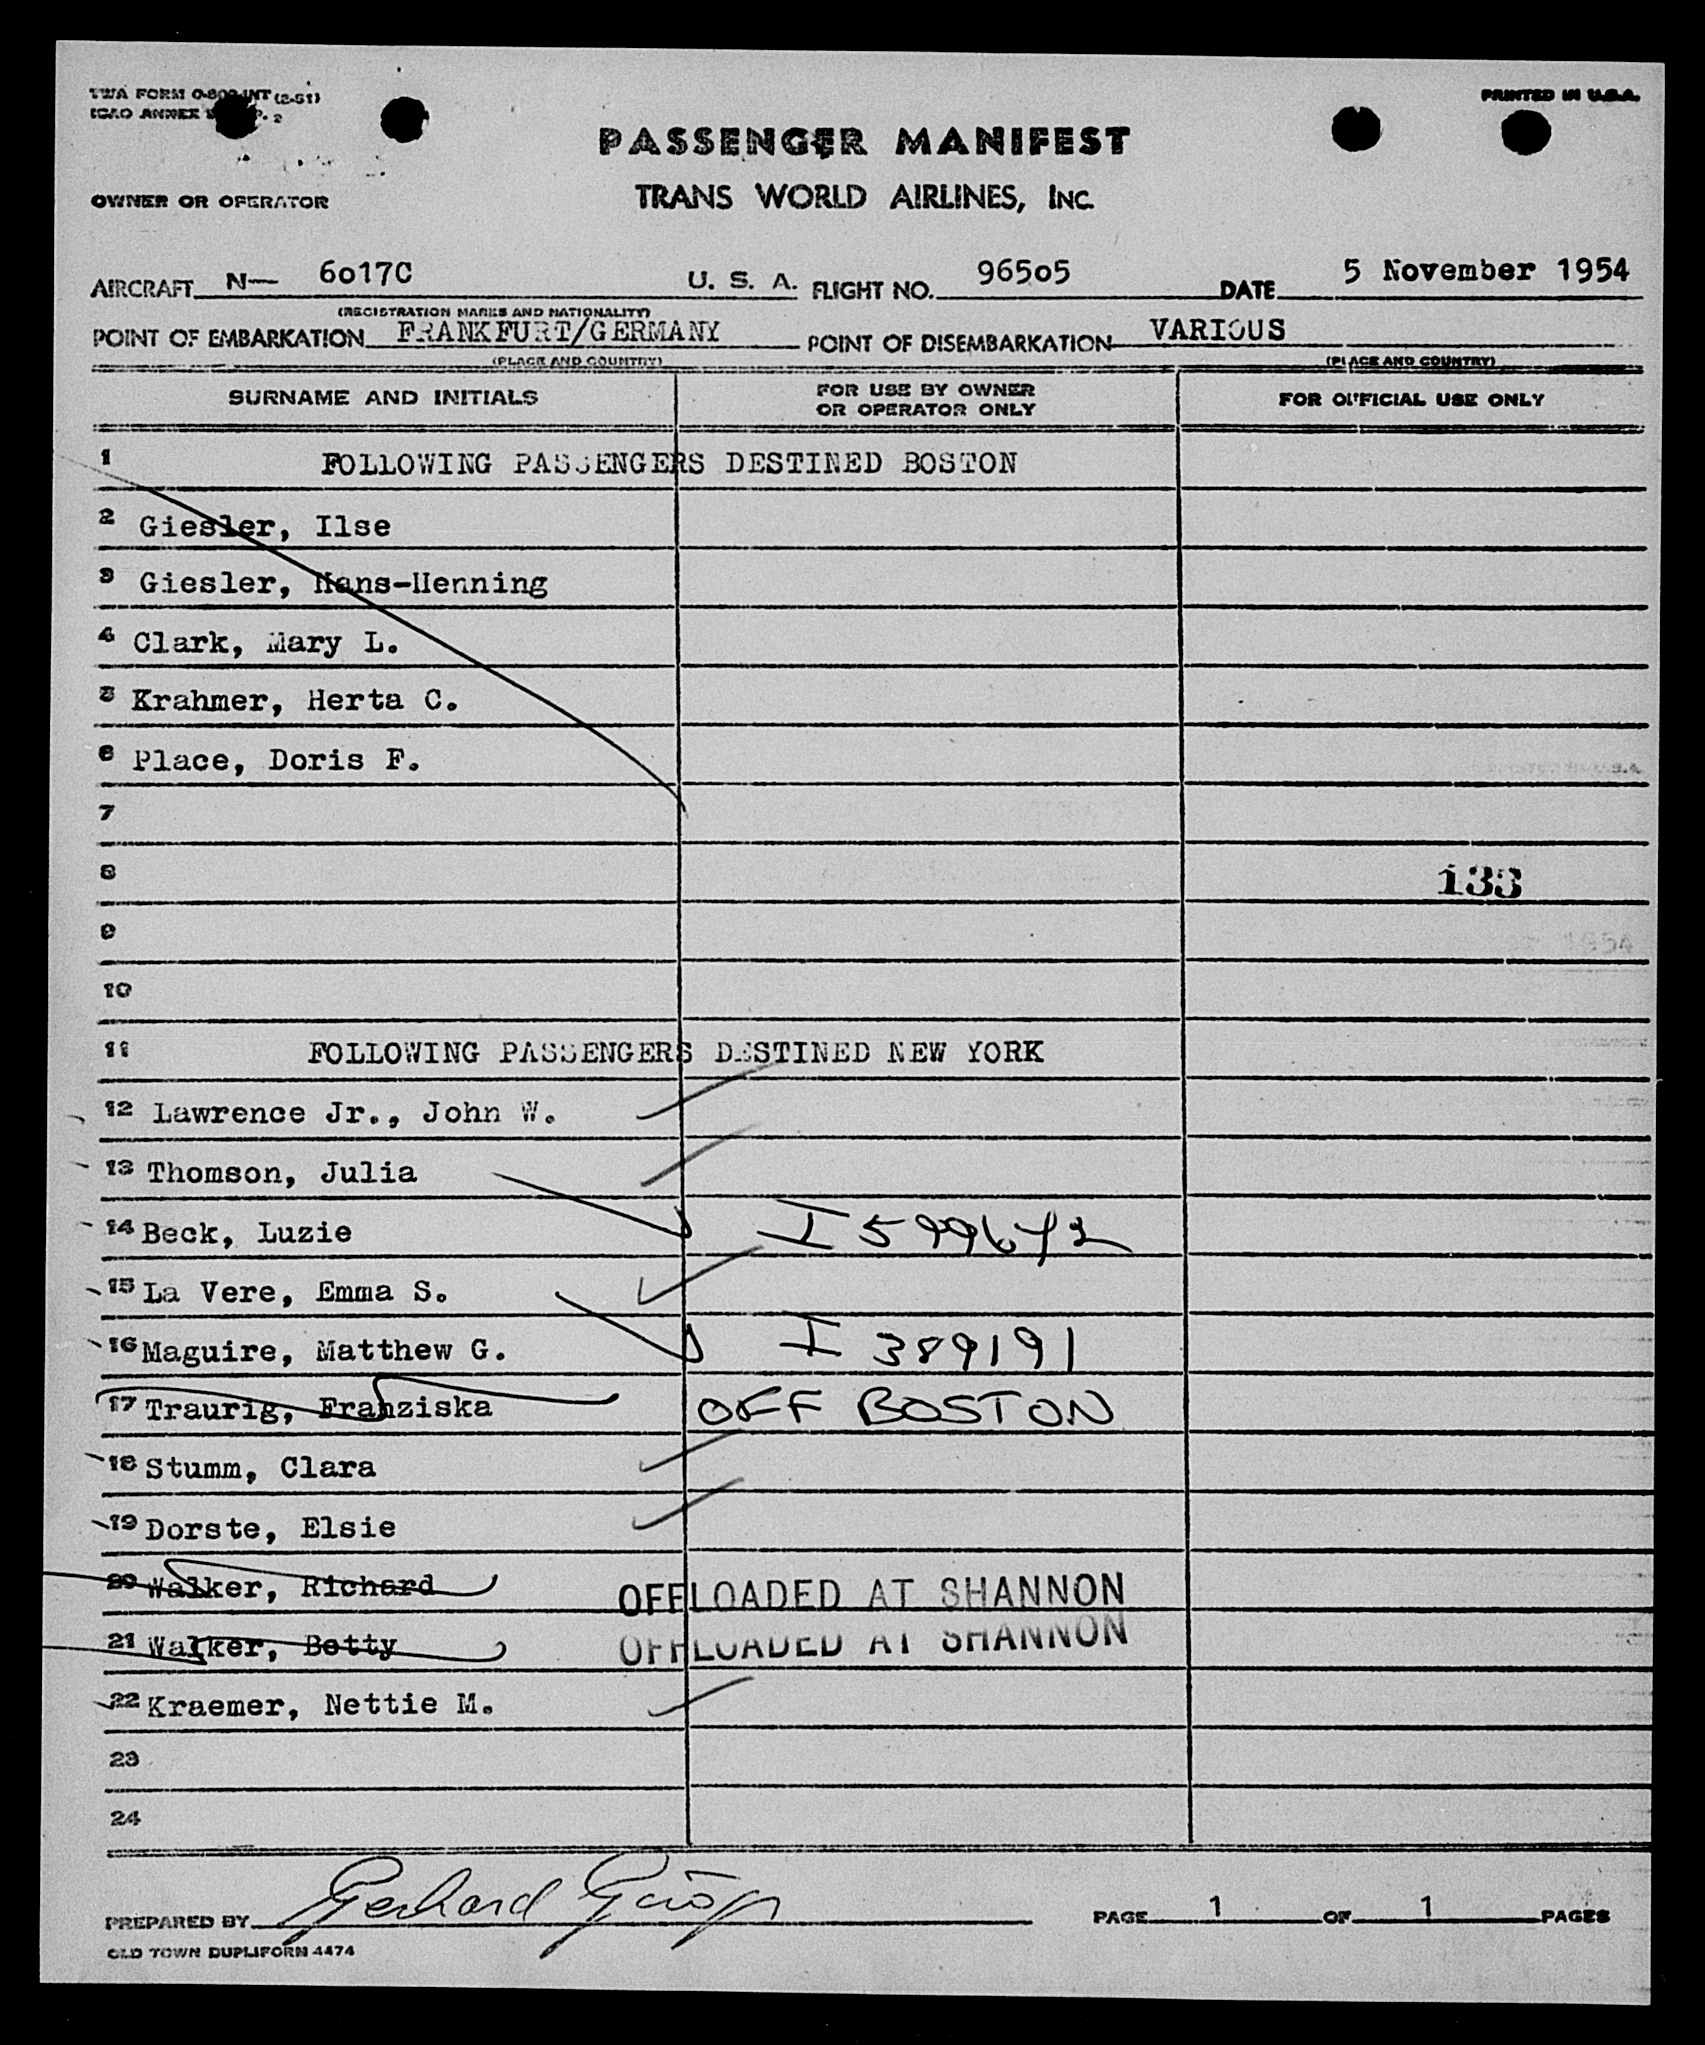 TWA FORM O-800-INT (2-51)
ICAO ANNEX P. 2
PRINTED IN U.S.A.
PASSENGER MANIFEST
TRANS WORLD AIRLINES, INC.
OWNER OR OPERATOR
AIRCRAFT N— 6o17C U. S. A. FLIGHT NO. 965o5 DATE 5 November 1954
(REGISTRATION MARKS AND NATIONALITY)
POINT OF EMBARKATION FRANKFURT/GERMANY POINT OF DISEMBARKATION VARIOUS
(PLACE AND COUNTRY) (PLACE AND COUNTRY)
SURNAME AND INITIALS FOR USE BY OWNER OR OPERATOR ONLY FOR OFFICIAL USE ONLY
1 FOLLOWING PASSENGERS DESTINED BOSTON
2 Giesler, Ilse
3 Giesler, Hans-Henning
4 Clark, Mary L.
5 Krahmer, Herta C.
6 Place, Doris F.
7
8 133
9
10
11 FOLLOWING PASSENGERS DESTINED NEW YORK
12 Lawrence Jr., John W.
13 Thomson, Julia
14 Beck, Luzie I 599642
15 La Vere, Emma S.
16 Maguire, Matthew G. I 389191
17 Traurig, Franziska OFF BOSTON
18 Stumm, Clara
19 Dorste, Elsie
20 Walker, Richard OFFLOADED AT SHANNON
21 Walker, Betty OFFLOADED AT SHANNON
22 Kraemer, Nettie M.
23
24
PREPARED BY Gerhard PAGE 1 OF 1 PAGES
OLD TOWN DUPLIFORM 4474